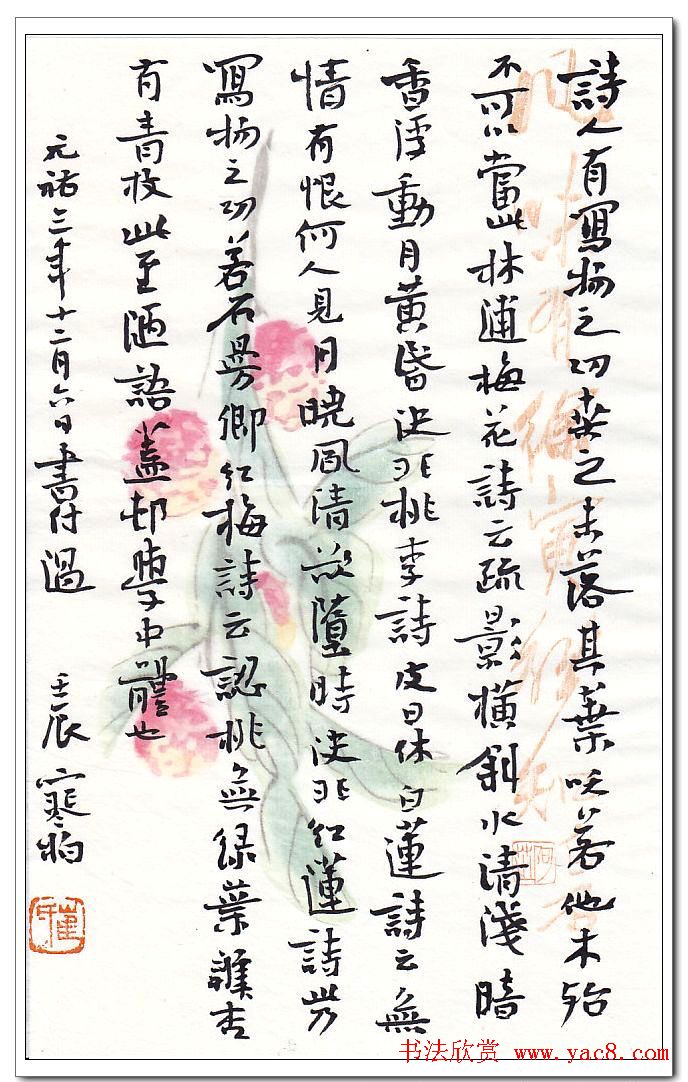 詩人有寫物之功桑之未落其葉沃若他木殆
不可以當此林逋梅花詩云疏影橫斜水清淺暗
香浮動月黃昏決非桃李詩皮日休白蓮詩云無
情有恨何人見月曉風清欲墮時決非紅蓮詩此乃
寫物之功若石曼卿紅梅詩云認桃無綠葉辨杏
有青枝此至陋語蓋村學中體也
元祐三年十二月六日書付過 壬辰寒
书法欣赏 www.yac8.com